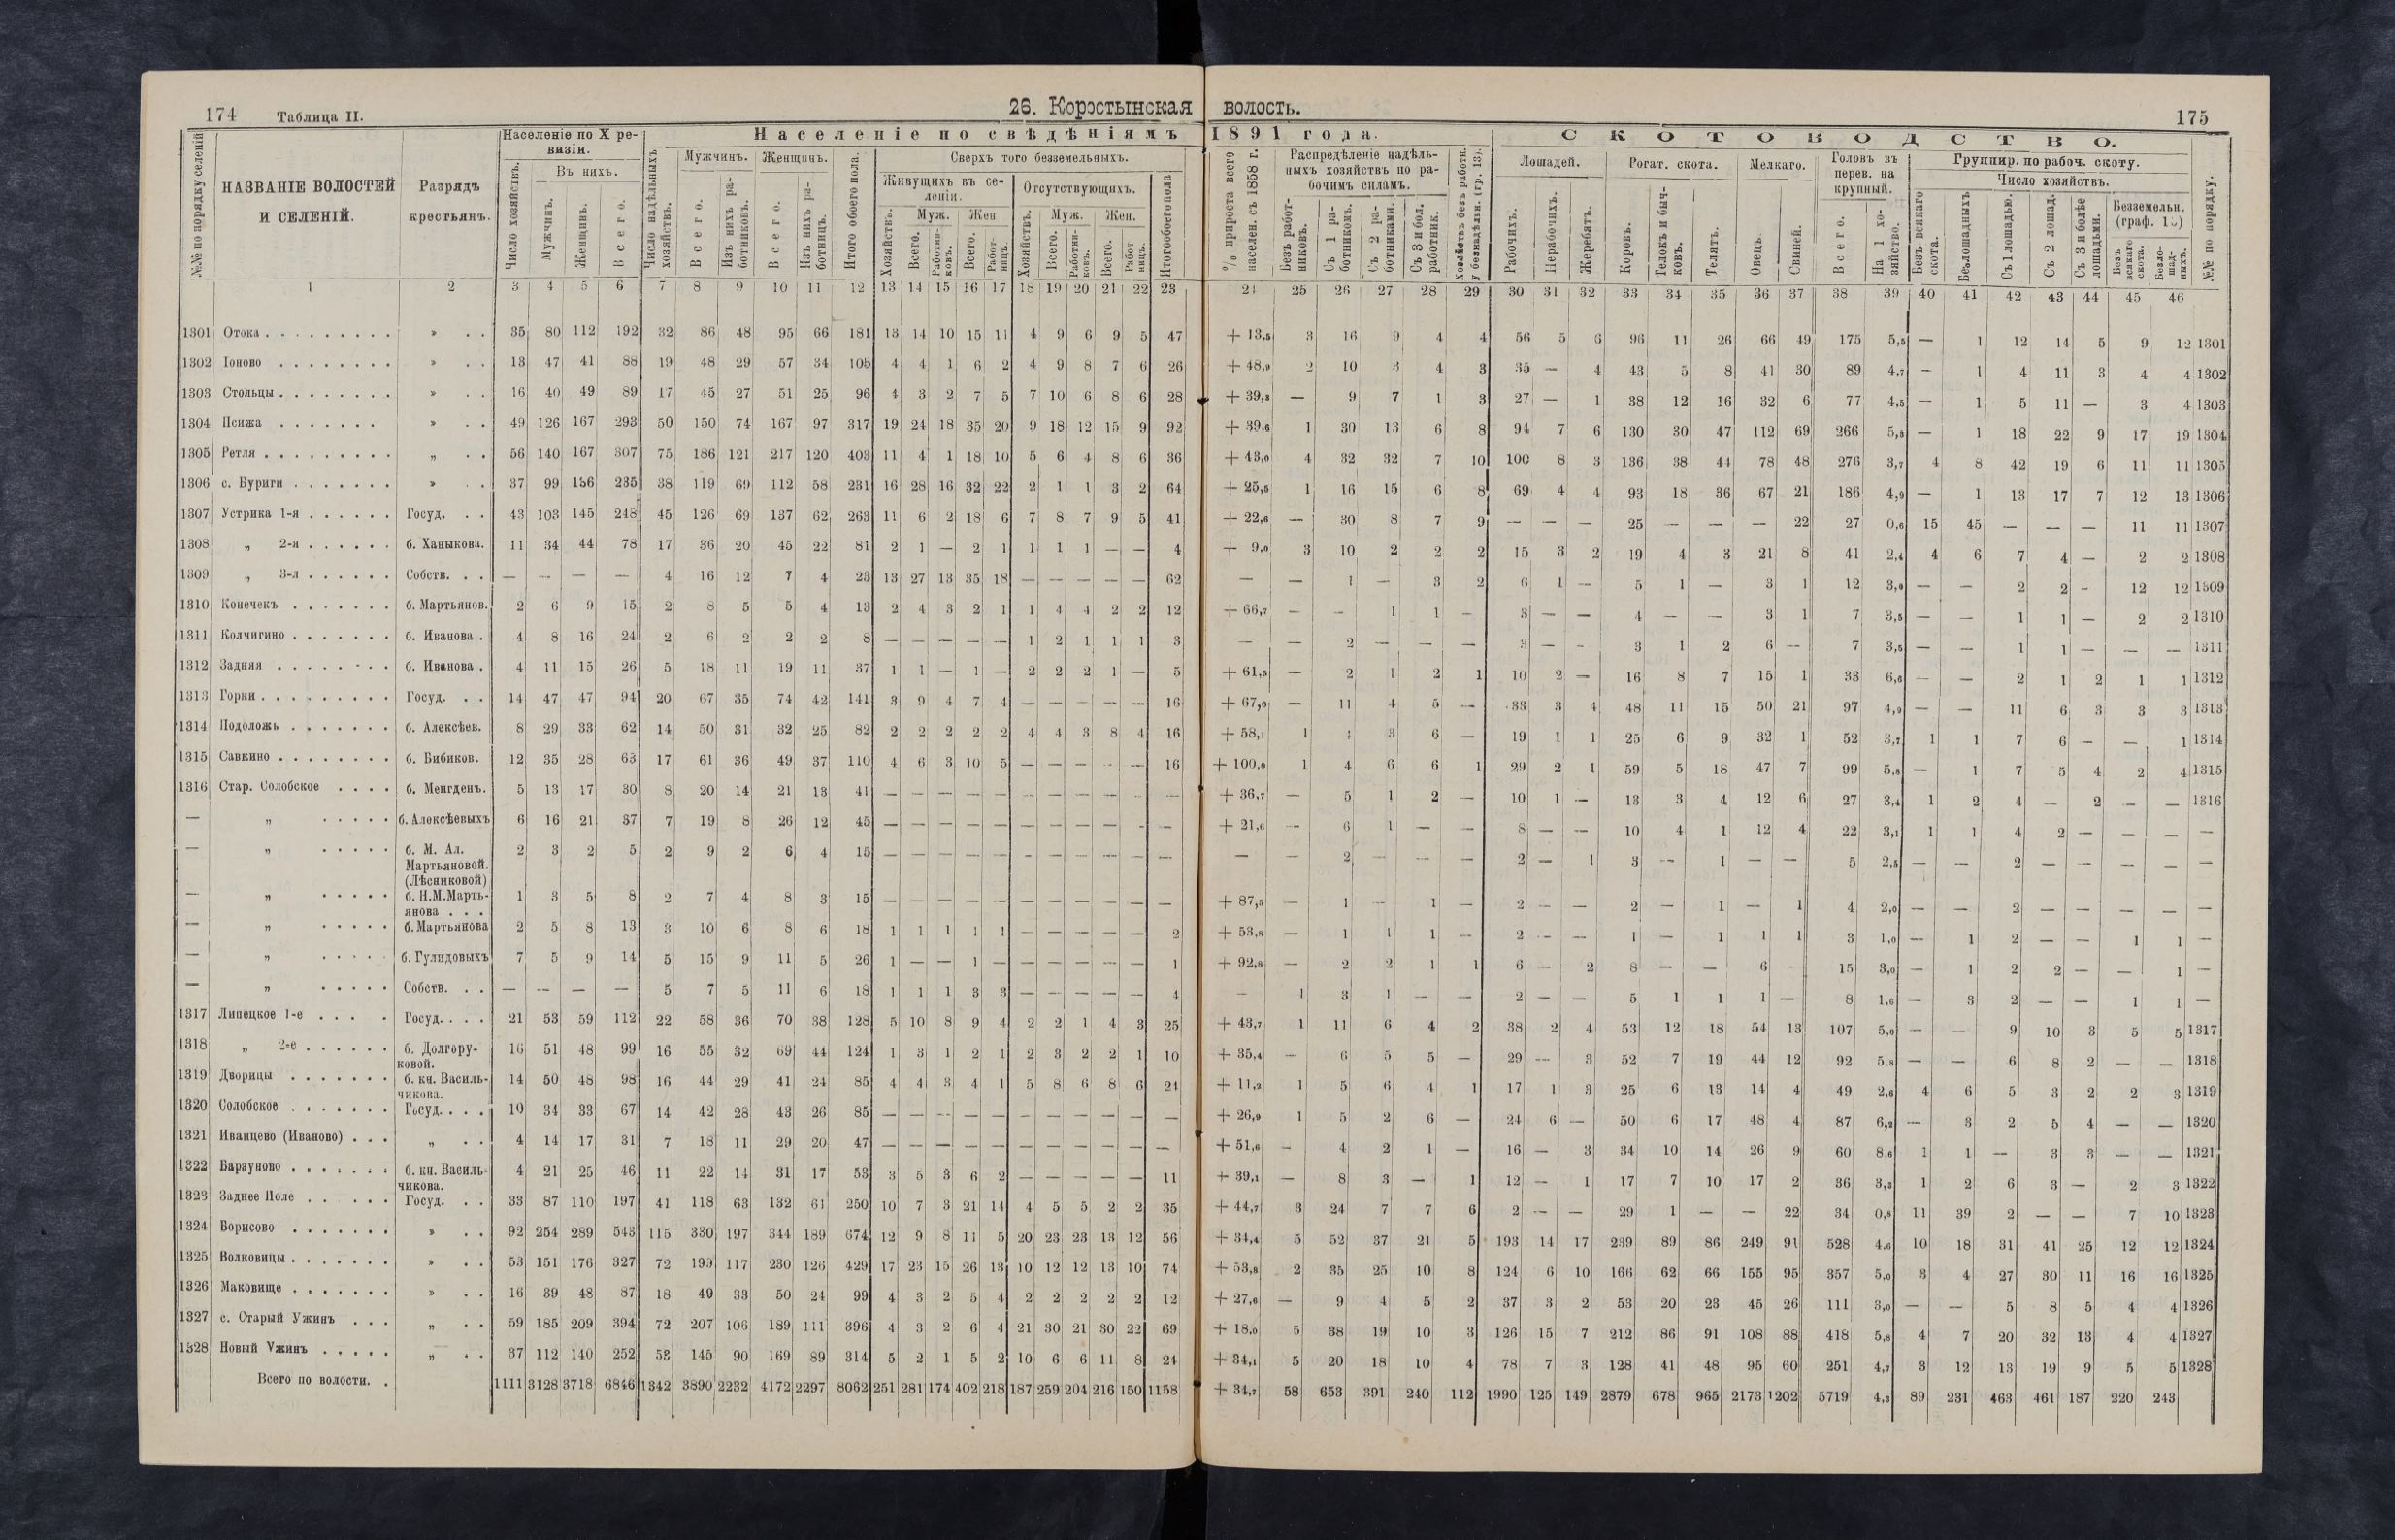 174 Таблица II.
26. Коростынская волость.
175
Населеніе по X ревизіи.
Населеніе по свѣдѣніямъ 1891 года.
СКОТОВОДСТВО.
№№ по порядку селеній
НАЗВАНІЕ ВОЛОСТЕЙ И СЕЛЕНІЙ.
Разрядъ крестьянъ.
Число хозяйствъ.
Въ нихъ.
Мужчинъ.
Женщинъ.
Всего.
Число надѣльныхъ хозяйствъ.
Мужчинъ.
Всего.
Изъ нихъ работниковъ.
Женщинъ.
Всего.
Изъ нихъ работницъ.
Итого обоего пола.
Сверхъ того безземельныхъ.
Живущихъ въ селеніи.
Отсутствующихъ.
Итого обоего пола
% прироста всего населен. съ 1858 г.
Распредѣленіе надѣльныхъ хозяйствъ по рабочимъ силамъ.
Безъ работниковъ.
Съ 1 работникомъ.
Съ 2 работниками.
Съ 3 и бол. работник.
Хозяйствъ безъ работн. у безнадѣльн. (гр. 13).
Лошадей.
Рабочихъ.
Нерабочихъ.
Жеребятъ.
Рогат. скота.
Коровъ.
Телокъ и бычковъ.
Телятъ.
Мелкаго.
Овецъ.
Свиней.
Головъ въ перев. на крупный.
Всего.
На 1 хозяйство.
Группир. по рабоч. скоту.
Число хозяйствъ.
Безъ всякаго скота.
Безлошадныхъ
Съ 1 лошадью.
Съ 2 лошад.
Съ 3 и болѣе лошадьми.
Безземельн.
Безъ всякаго скота.
Безлошадныхъ.
№№ по порядку.
1 2 3 4 5 6 7 8 9 10 11 12 13 14 15 16 17 18 19 20 21 22 23 24 25 26 27 28 29 30 31 32 33 34 35 36 37 38 39 40 41 42 43 44 45 46
1301 Отока » 35 80 112 192 32 86 48 95 66 181 13 14 10 15 11 4 9 6 9 5 47 + 13,5 3 16 9 4 4 56 5 6 96 11 26 66 49 175 5,5 — 1 12 14 5 9 12 1301
1302 Іоново » 13 47 41 88 19 48 29 57 34 105 4 4 1 6 2 4 9 8 7 6 26 + 48,9 2 10 3 4 3 35 — 4 43 5 8 41 30 89 4,7 — 1 4 11 3 4 4 1302
1303 Стольцы » 16 40 49 89 17 45 27 51 25 96 4 3 2 7 5 7 10 6 8 6 28 + 39,3 — 9 7 1 3 27 — 1 38 12 16 32 6 77 4,5 — 1 5 11 — 3 4 1303
1304 Псижа » 49 126 167 293 50 150 74 167 97 317 19 24 18 35 20 9 18 12 15 9 92 + 39,6 1 30 13 6 8 94 7 6 130 30 47 112 69 266 5,3 — 1 18 22 9 17 19 1304
1305 Ретля „ 56 140 167 307 75 186 121 217 120 403 11 4 1 18 10 5 6 4 8 6 36 + 43,0 4 32 32 7 10 100 8 3 136 38 44 78 48 276 3,7 4 8 42 19 6 11 11 1305
1306 с. Буриги » 37 99 136 235 38 119 69 112 58 231 16 28 16 32 22 2 1 1 3 2 64 + 25,5 1 16 15 6 8 69 4 4 93 18 36 67 21 186 4,9 — 1 13 17 7 12 13 1306
1307 Устрика 1-я Госуд. 43 103 145 248 45 126 69 137 62 263 11 6 2 18 6 7 8 7 9 5 41 + 22,6 — 30 8 7 9 — — — 25 — — — 22 27 0,6 15 45 — — — 11 11 1307
1308 „ 2-я б. Ханыкова. 11 34 44 78 17 36 20 45 22 81 2 1 — 2 1 1 1 1 — — 4 + 9,0 3 10 2 2 2 15 3 2 19 4 3 21 8 41 2,4 4 6 7 4 — 2 2 1308
1309 „ 3-я Собств. — — — — 4 16 12 7 4 23 13 27 13 35 18 — — — — — 62 — — 1 — 3 2 6 1 — 5 1 — 3 1 12 3,0 — — 2 2 - 12 12 1309
1310 Конечекъ б. Мартьянов. 2 6 9 15 2 8 5 5 4 13 2 4 3 2 1 1 4 4 2 2 12 + 66,7 — — 1 1 — 3 — — 4 — — 3 1 7 3,5 — — 1 1 — 2 2 1310
1311 Колчигино б. Иванова. 4 8 16 24 2 6 2 2 2 8 — — — — — 1 2 1 1 1 3 — — 2 — — — 3 — - 3 1 2 6 — 7 3,5 — — 1 1 — — — 1311
1312 Задняя б. Иванова. 4 11 15 26 5 18 11 19 11 37 1 1 — 1 — 2 2 2 1 — 5 + 61,5 — 2 1 2 1 10 2 — 16 8 7 15 1 33 6,6 — — 2 1 2 1 1 1312
1313 Горки Госуд. 14 47 47 94 20 67 35 74 42 141 3 9 4 7 4 — — — — — 16 + 67,0 — 11 4 5 — 33 3 4 48 11 15 50 21 97 4,9 — — 11 6 3 3 3 1313
1314 Подоложь б. Алексѣев. 8 29 33 62 14 50 31 32 25 82 2 2 2 2 2 4 4 3 8 4 16 + 58,1 1 4 3 6 — 19 1 1 25 6 9 32 1 52 3,7 1 1 7 6 — — 1 1314
1315 Савкино б. Бибиков. 12 35 28 63 17 61 36 49 37 110 4 6 3 10 5 — — — — — 16 + 100,0 1 4 6 6 1 29 2 1 59 5 18 47 7 99 5,8 — 1 7 5 4 2 4 1315
1316 Стар. Солобское б. Менгденъ. 5 13 17 30 8 20 14 21 13 41 — — — — — — — — — — — + 36,7 — 5 1 2 — 10 1 — 13 3 4 12 6 27 3,4 1 2 4 — 2 — — 1316
— „ б. Алексѣевыхъ 6 16 21 37 7 19 8 26 12 45 — — — — — — — — — - — + 21,6 — 6 1 — — 8 — — 10 4 1 12 4 22 3,1 1 1 4 2 — — — —
— „ б. М. Ал. Мартьяновой. (Лѣсниковой) 2 3 2 5 2 9 2 6 4 15 — — — — — — — — — — — — — 2 — — — 2 — 1 3 — 1 — — 5 2,5 — — 2 — — — — —
— „ б. Н.М.Мартьянова 1 3 5 8 2 7 4 8 3 15 — — — — — — — — — — — + 87,5 — 1 — 1 — 2 — — 2 — 1 — 1 4 2,0 — — 2 — — — — —
— „ б. Мартьянова 2 5 8 13 3 10 6 8 6 18 1 1 1 1 1 — — — — — 2 + 53,8 — 1 1 1 — 2 — — 1 — 1 1 1 3 1,0 — 1 2 — — 1 1 —
— „ б. Гулидовыхъ 7 5 9 14 5 15 9 11 5 26 1 — — 1 — — — — — — 1 + 92,8 — 2 2 1 1 6 — 2 8 — — 6 - 15 3,0 — 1 2 2 — — 1 —
— „ Собств. — — — — 5 7 5 11 6 18 1 1 1 3 3 — — — — — 4 — 1 3 1 — — 2 — — 5 1 1 1 — 8 1,6 — 3 2 — — 1 1 —
1317 Липецкое 1-е Госуд. 21 53 59 112 22 58 36 70 38 128 5 10 8 9 4 2 2 1 4 3 25 + 43,7 1 11 6 4 2 38 2 4 53 12 18 54 13 107 5,0 — — 9 10 3 5 5 1317
1318 „ 2-е б. Долгоруковой. 16 51 48 99 16 55 32 69 44 124 1 3 1 2 1 2 3 2 2 1 10 + 35,4 — 6 5 5 — 29 — 3 52 7 19 44 12 92 5,8 — — 6 8 2 — — 1318
1319 Дворицы б. кн. Васильчикова. 14 50 48 98 16 44 29 41 24 85 4 4 3 4 1 5 8 6 8 6 24 + 11,2 1 5 6 4 1 17 1 3 25 6 13 14 4 49 2,6 4 6 5 3 2 2 3 1319
1320 Солобское Госуд. 10 34 33 67 14 42 28 43 26 85 — — — — — — — — — — — + 26,9 1 5 2 6 — 24 6 — 50 6 17 48 4 87 6,2 — 3 2 5 4 — — 1320
1321 Иванцево (Иваново) „ 4 14 17 31 7 18 11 29 20 47 — — — — — — — — — — — + 51,6 - 4 2 1 — 16 — 3 34 10 14 26 9 60 8,6 1 1 — 3 3 — — 1321
1322 Барауново б. кн. Васильчикова. 4 21 25 46 11 22 14 31 17 53 3 5 3 6 2 — — — — — 11 + 39,1 — 8 3 — 1 12 — 1 17 7 10 17 2 36 3,3 1 2 6 3 — 2 3 1322
1323 Заднее Поле Госуд. 33 87 110 197 41 118 63 132 61 250 10 7 3 21 14 4 5 5 2 2 35 + 44,7 3 24 7 7 6 2 — — 29 1 — — 22 34 0,8 11 39 2 — — 7 10 1323
1324 Борисово » 92 254 289 543 115 330 197 344 189 674 12 9 8 11 5 20 23 23 13 12 56 + 34,4 5 52 37 21 5 193 14 17 239 89 86 249 91 528 4,6 10 18 31 41 25 12 12 1324
1325 Волковицы » 53 151 176 327 72 199 117 230 126 429 17 23 15 26 13 10 12 12 13 10 74 + 53,8 2 35 25 10 8 124 6 10 166 62 66 155 95 357 5,0 3 4 27 30 11 16 16 1325
1326 Маковище » 16 39 48 87 18 49 33 50 24 99 4 3 2 5 4 2 2 2 2 2 12 + 27,6 — 9 4 5 2 37 3 2 53 20 23 45 26 111 3,0 — — 5 8 5 4 4 1326
1327 с. Старый Ужинъ „ 59 185 209 394 72 207 106 189 111 396 4 3 2 6 4 21 30 21 30 22 69 + 18,0 5 38 19 10 3 126 15 7 212 86 91 108 88 418 5,8 4 7 20 32 13 4 4 1327
1328 Новый Ужинъ „ 37 112 140 252 53 145 90 169 89 314 5 2 1 5 2 10 6 6 11 8 24 + 34,1 5 20 18 10 4 78 7 3 128 41 48 95 60 251 4,7 3 12 13 19 9 5 5 1328
Всего по волости. 1111 3128 3718 6846 1342 3890 2232 4172 2297 8062 251 281 174 402 218 187 259 204 216 150 1158 + 34,7 58 653 391 240 112 1990 125 149 2879 678 965 2173 1202 5719 4,3 89 231 463 461 187 220 243